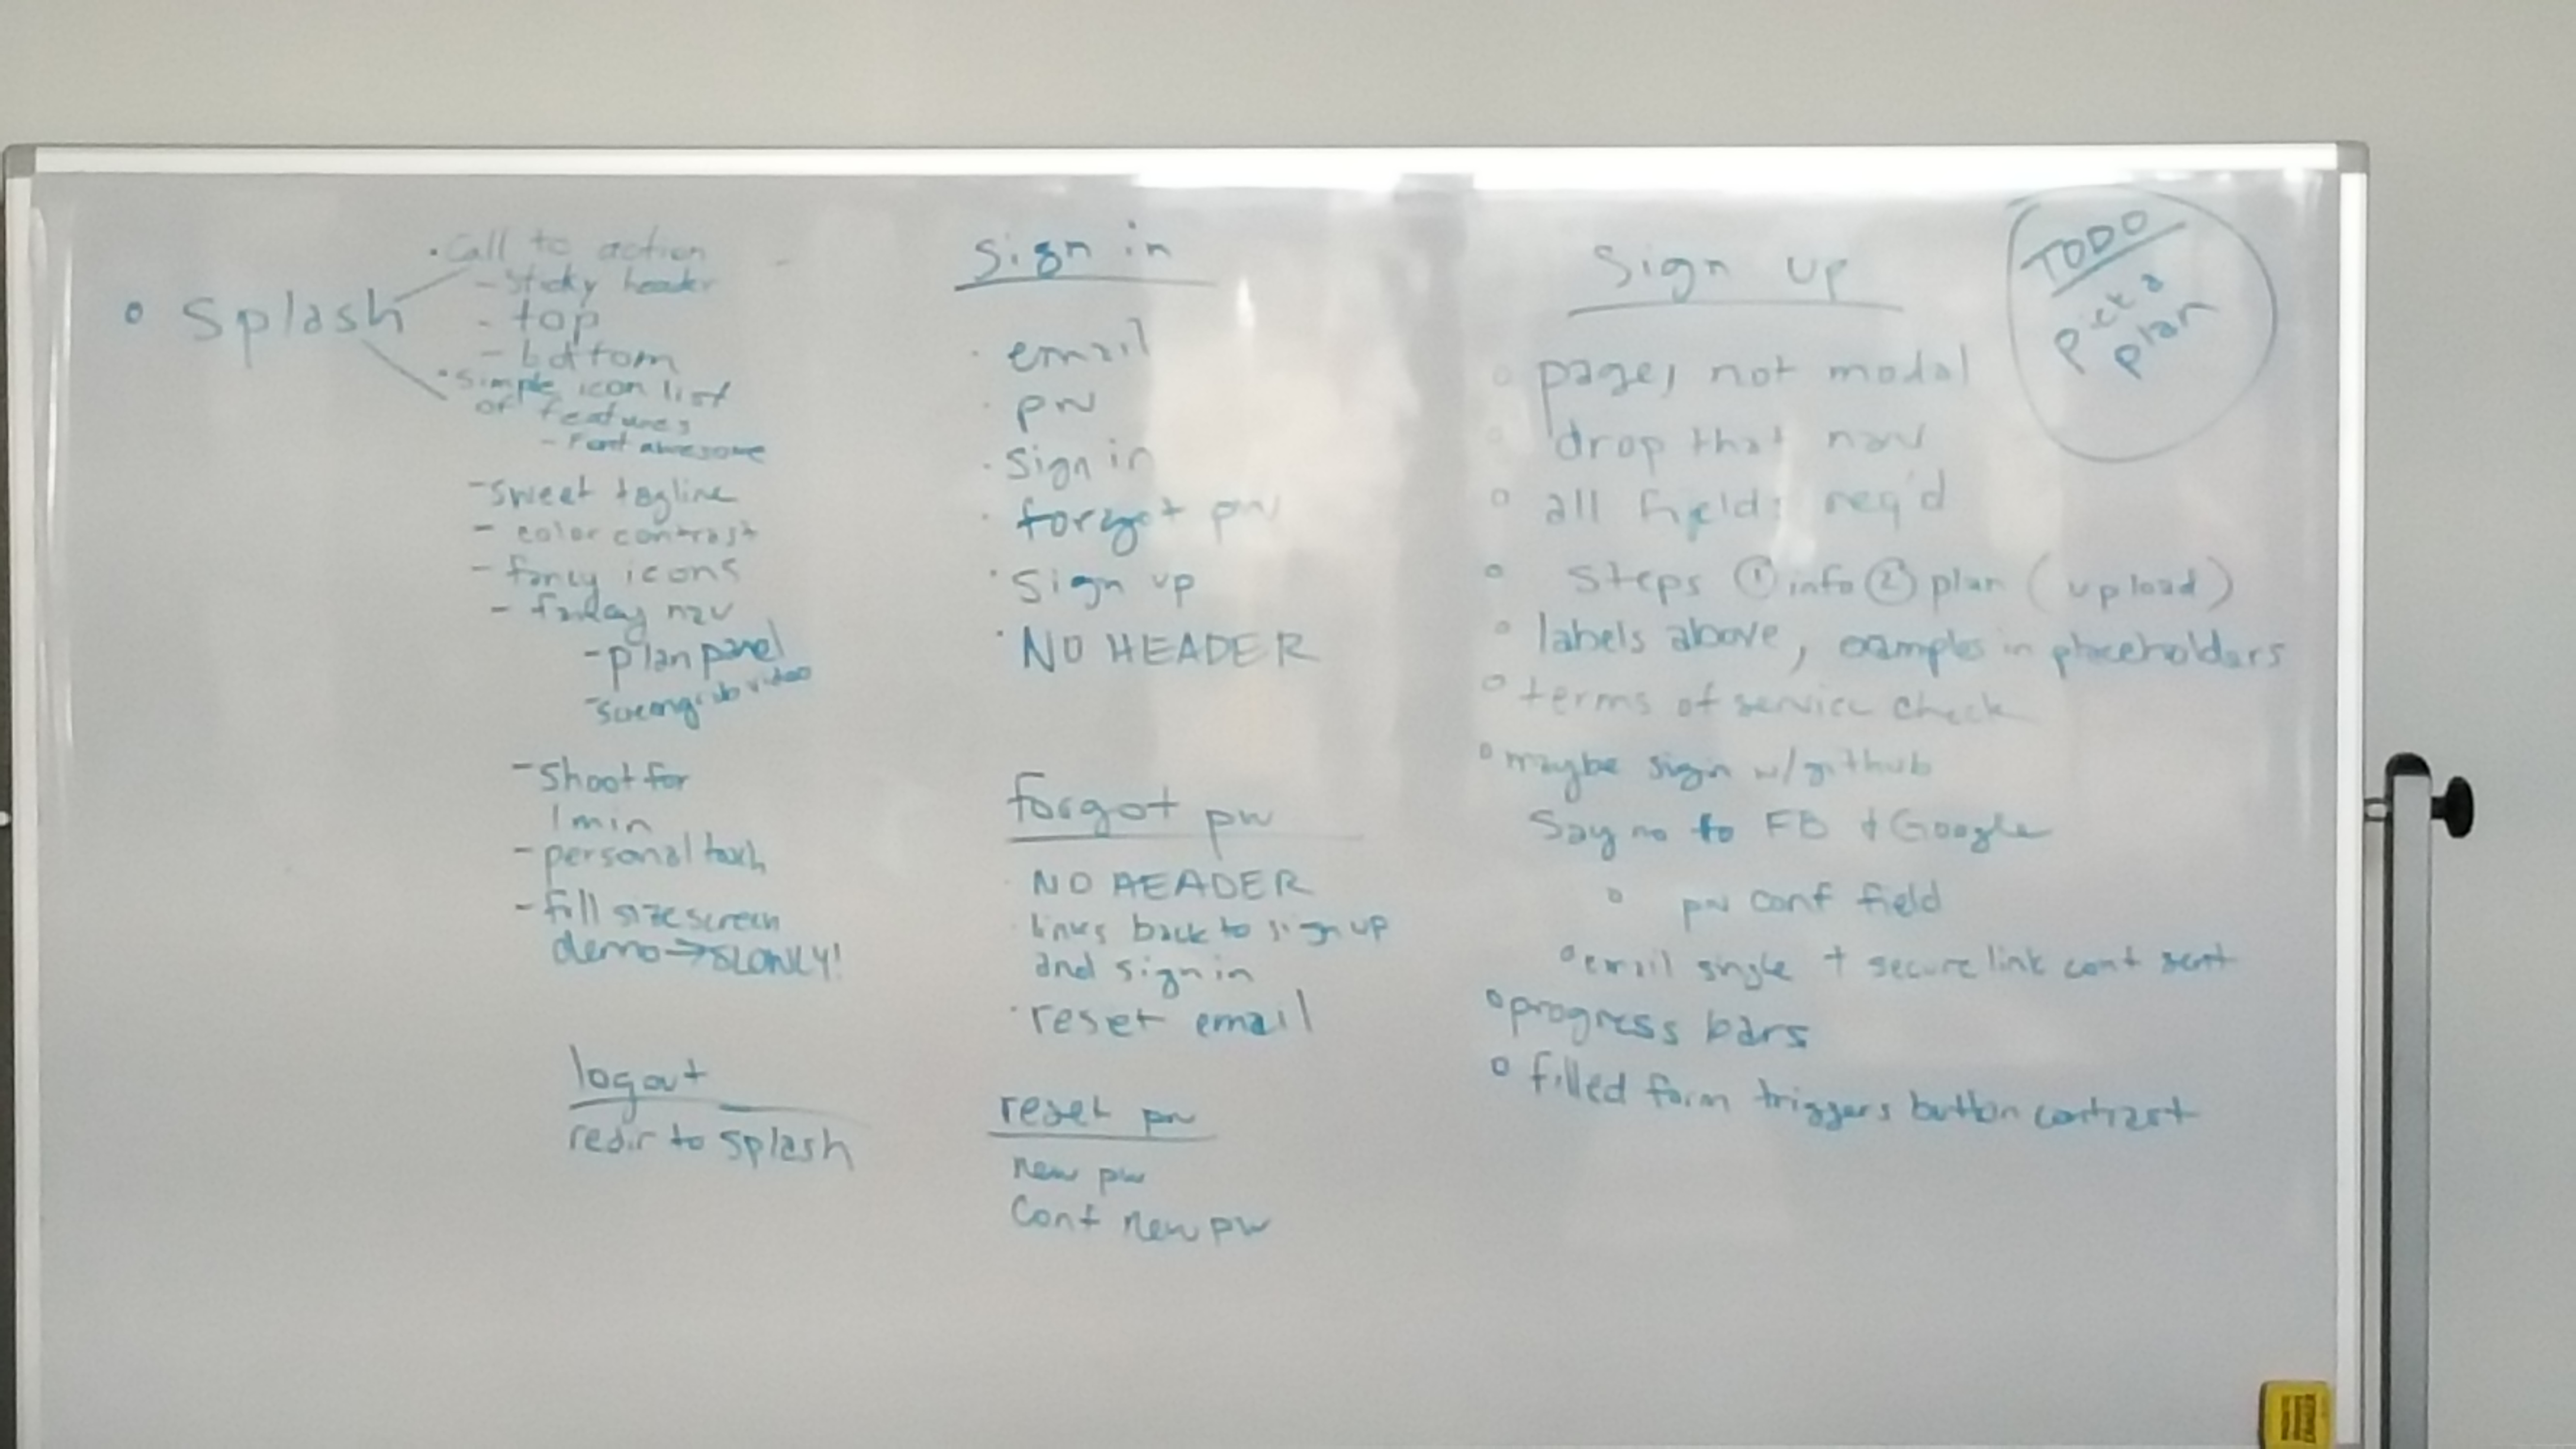 • Splash
• Call to action
- Sticky header
- top
- bottom
• Simple icon list
of features
- Font awesome
- Sweet tagline
- color contrast
- fancy icons
- nav
- plan panel
- video
- Shoot for
1 min
- personal touch
- full size screen
demo → SLOWLY!
logout
redir to splash
Sign in
· email
· pw
· Sign in
· forgot pw
· Sign up
· NO HEADER
forgot pw
· NO HEADER
· links back to sign up
and sign in
· reset email
reset pw
new pw
Conf new pw
Sign up
o page, not modal
o drop that nav
o all fields req'd
o Steps ① info ② plan (upload)
o labels above, examples in placeholders
o terms of service check
o maybe sign w/github
Say no to FB + Google
o pw conf field
o email single + secure link conf sent
o progress bars
o filled form triggers button contrast
TODO
pick a
plan